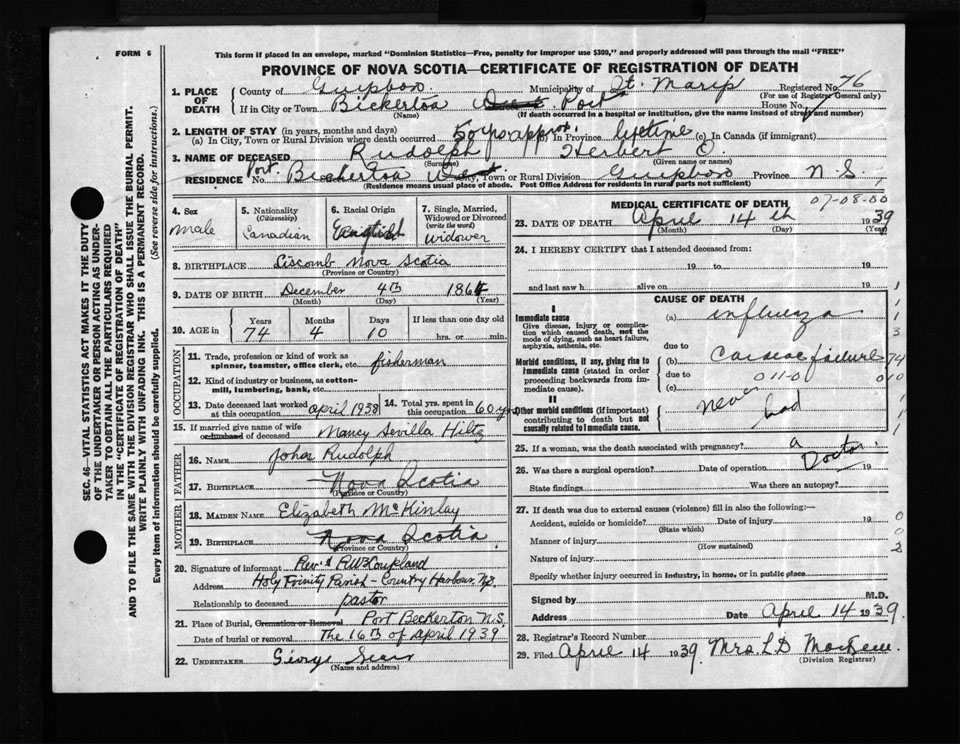 FORM 6
This form if placed in an envelope, marked "Dominion Statistics—Free, penalty for improper use $300," and properly addressed will pass through the mail "FREE"
PROVINCE OF NOVA SCOTIA—CERTIFICATE OF REGISTRATION OF DEATH
SEC. 46—VITAL STATISTICS ACT MAKES IT THE DUTY
OF THE UNDERTAKER OR PERSON ACTING AS UNDER-
TAKER TO OBTAIN ALL THE PARTICULARS REQUIRED
IN THE "CERTIFICATE OF REGISTRATION OF DEATH"
AND TO FILE THE SAME WITH THE DIVISION REGISTRAR WHO SHALL ISSUE THE BURIAL PERMIT.
WRITE PLAINLY WITH UNFADING INK. THIS IS A PERMANENT RECORD.
Every item of information should be carefully supplied. (See reverse side for instructions.)
1. PLACE OF DEATH
County of Guysboro Municipality of St. Marys Registered No. 76
(For use of Registrar General only)
If in City or Town Bickerton West Port House No.
(Name) (If death occurred in a hospital or institution, give the name instead of street and number)
2. LENGTH OF STAY (in years, months and days)
(a) In City, Town or Rural Division where death occurred 50 yrs approx (b) In Province lifetime (c) In Canada (if immigrant)
3. NAME OF DECEASED Rudolph Herbert O.
(Surname) (Given name or names)
RESIDENCE No. Port Bickerton West City, Town or Rural Division Guysboro Province N.S.
(Residence means usual place of abode. Post Office Address for residents in rural parts not sufficient)
4. Sex
male
5. Nationality
(Citizenship)
Canadian
6. Racial Origin
English
7. Single, Married, Widowed or Divorced
(write the word)
widower
8. BIRTHPLACE Liscomb Nova Scotia
(Province or Country)
9. DATE OF BIRTH December 4th 1864
(Month) (Day) (Year)
10. AGE in
Years Months Days If less than one day old
74 4 10 hrs. or min.
OCCUPATION
11. Trade, profession or kind of work as
spinner, teamster, office clerk, etc. fisherman
12. Kind of industry or business, as cotton-
mill, lumbering, bank, etc.
13. Date deceased last worked at this occupation April 1938
14. Total yrs. spent in this occupation 60 yrs
15. If married give name of wife
or husband of deceased Nancy Sevilla Hiltz
FATHER
16. Name John Rudolph
17. Birthplace Nova Scotia
(Province or Country)
MOTHER
18. Maiden Name Elizabeth McKinlay
19. Birthplace Nova Scotia
(Province or Country)
20. Signature of informant Rev.
Address Holy Trinity Parish - Country Harbour N.S.
Relationship to deceased pastor
21. Place of Burial, Cremation or Removal Port Beckerton N.S.
Date of burial or removal The 16th of April 1939
22. UNDERTAKER George
(Name and address)
MEDICAL CERTIFICATE OF DEATH 07-08-00
23. DATE OF DEATH April 14th 1939
(Month) (Day) (Year)
24. I HEREBY CERTIFY that I attended deceased from:
19 to 19
and last saw h alive on 19
CAUSE OF DEATH
I
Immediate cause
Give disease, injury or complication which caused death, not the mode of dying, such as heart failure, asphyxia, asthenia, etc.
(a) influenza
due to
Morbid conditions, if any, giving rise to immediate cause (stated in order proceeding backwards from immediate cause).
(b) Cardiac failure
due to
(c)
011-0
II
Other morbid conditions (if important) contributing to death but not causally related to immediate cause.
never had
a
Doctor
25. If a woman, was the death associated with pregnancy?
26. Was there a surgical operation? Date of operation 19
State findings Was there an autopsy?
27. If death was due to external causes (violence) fill in also the following:—
Accident, suicide or homicide? Date of injury 19
(State which)
Manner of injury
(How sustained)
Nature of injury
Specify whether injury occurred in industry, in home, or in public place
Signed by M.D.
Address Date April 14 1939
28. Registrar's Record Number
29. Filed April 14 1939 Mrs. L D
(Division Registrar)